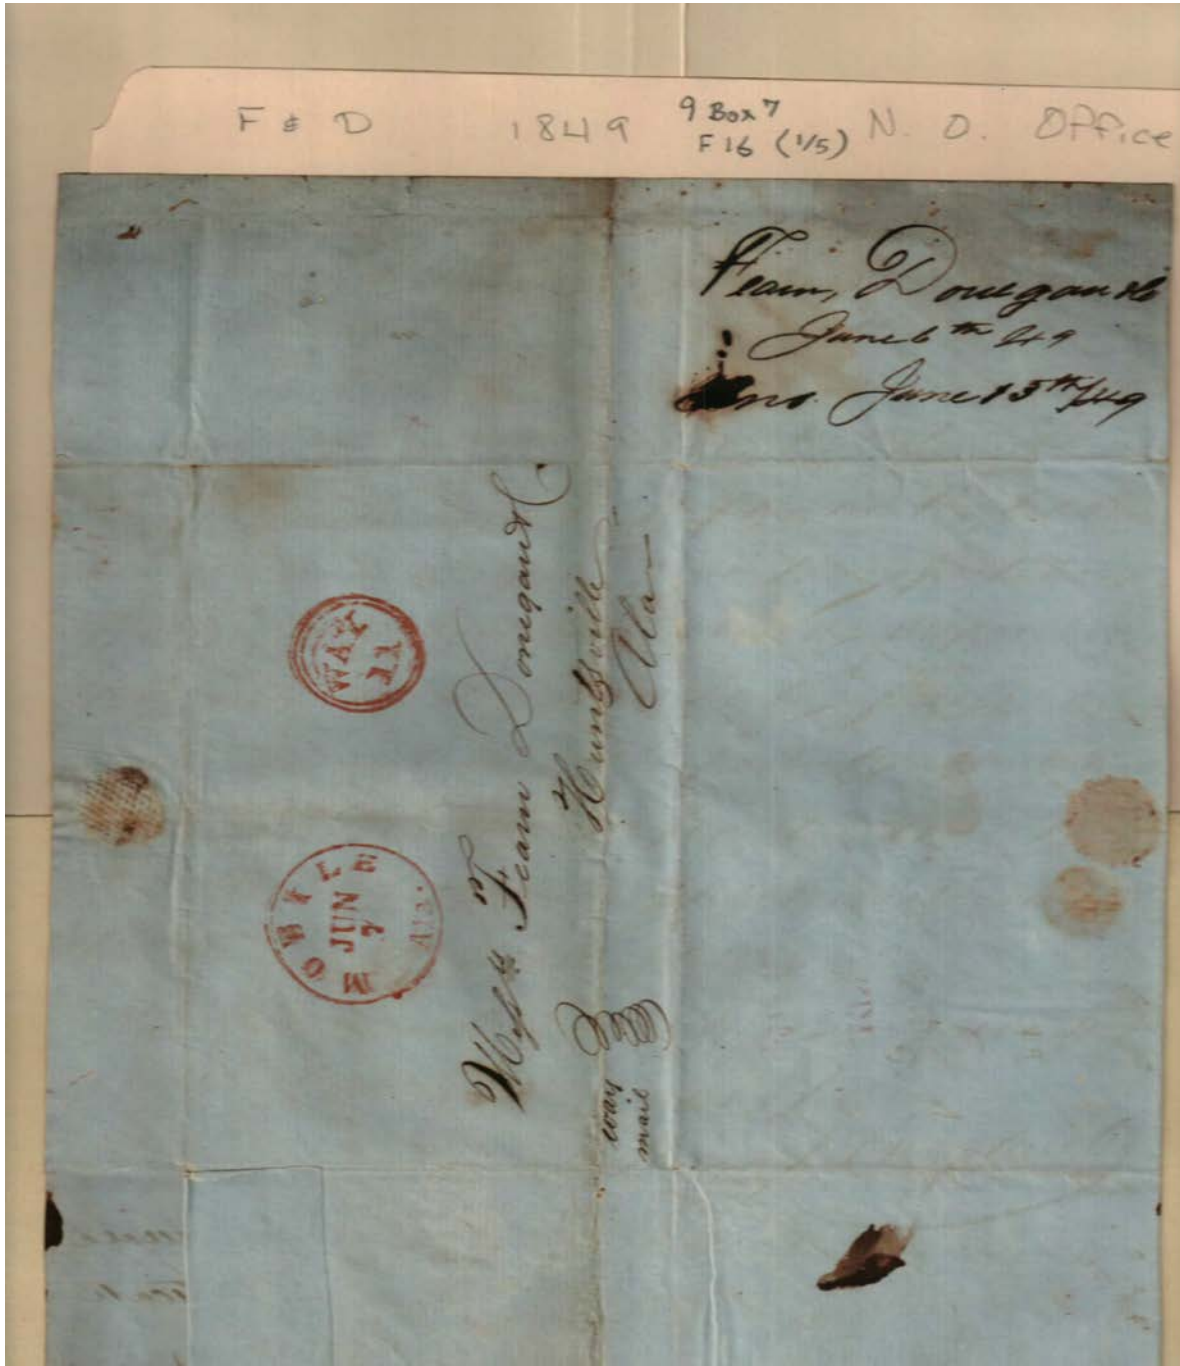 F & D 1849 9 Box 7 N. O. Office
F 16 (1/5)
Fearn, Donegan & Co
June 6th 49
June 13th/49
WAY
11
MOBILE
JUN
7
Ala.
Messrs Fearn Donegan & C
Huntsville
Ala
way
mail